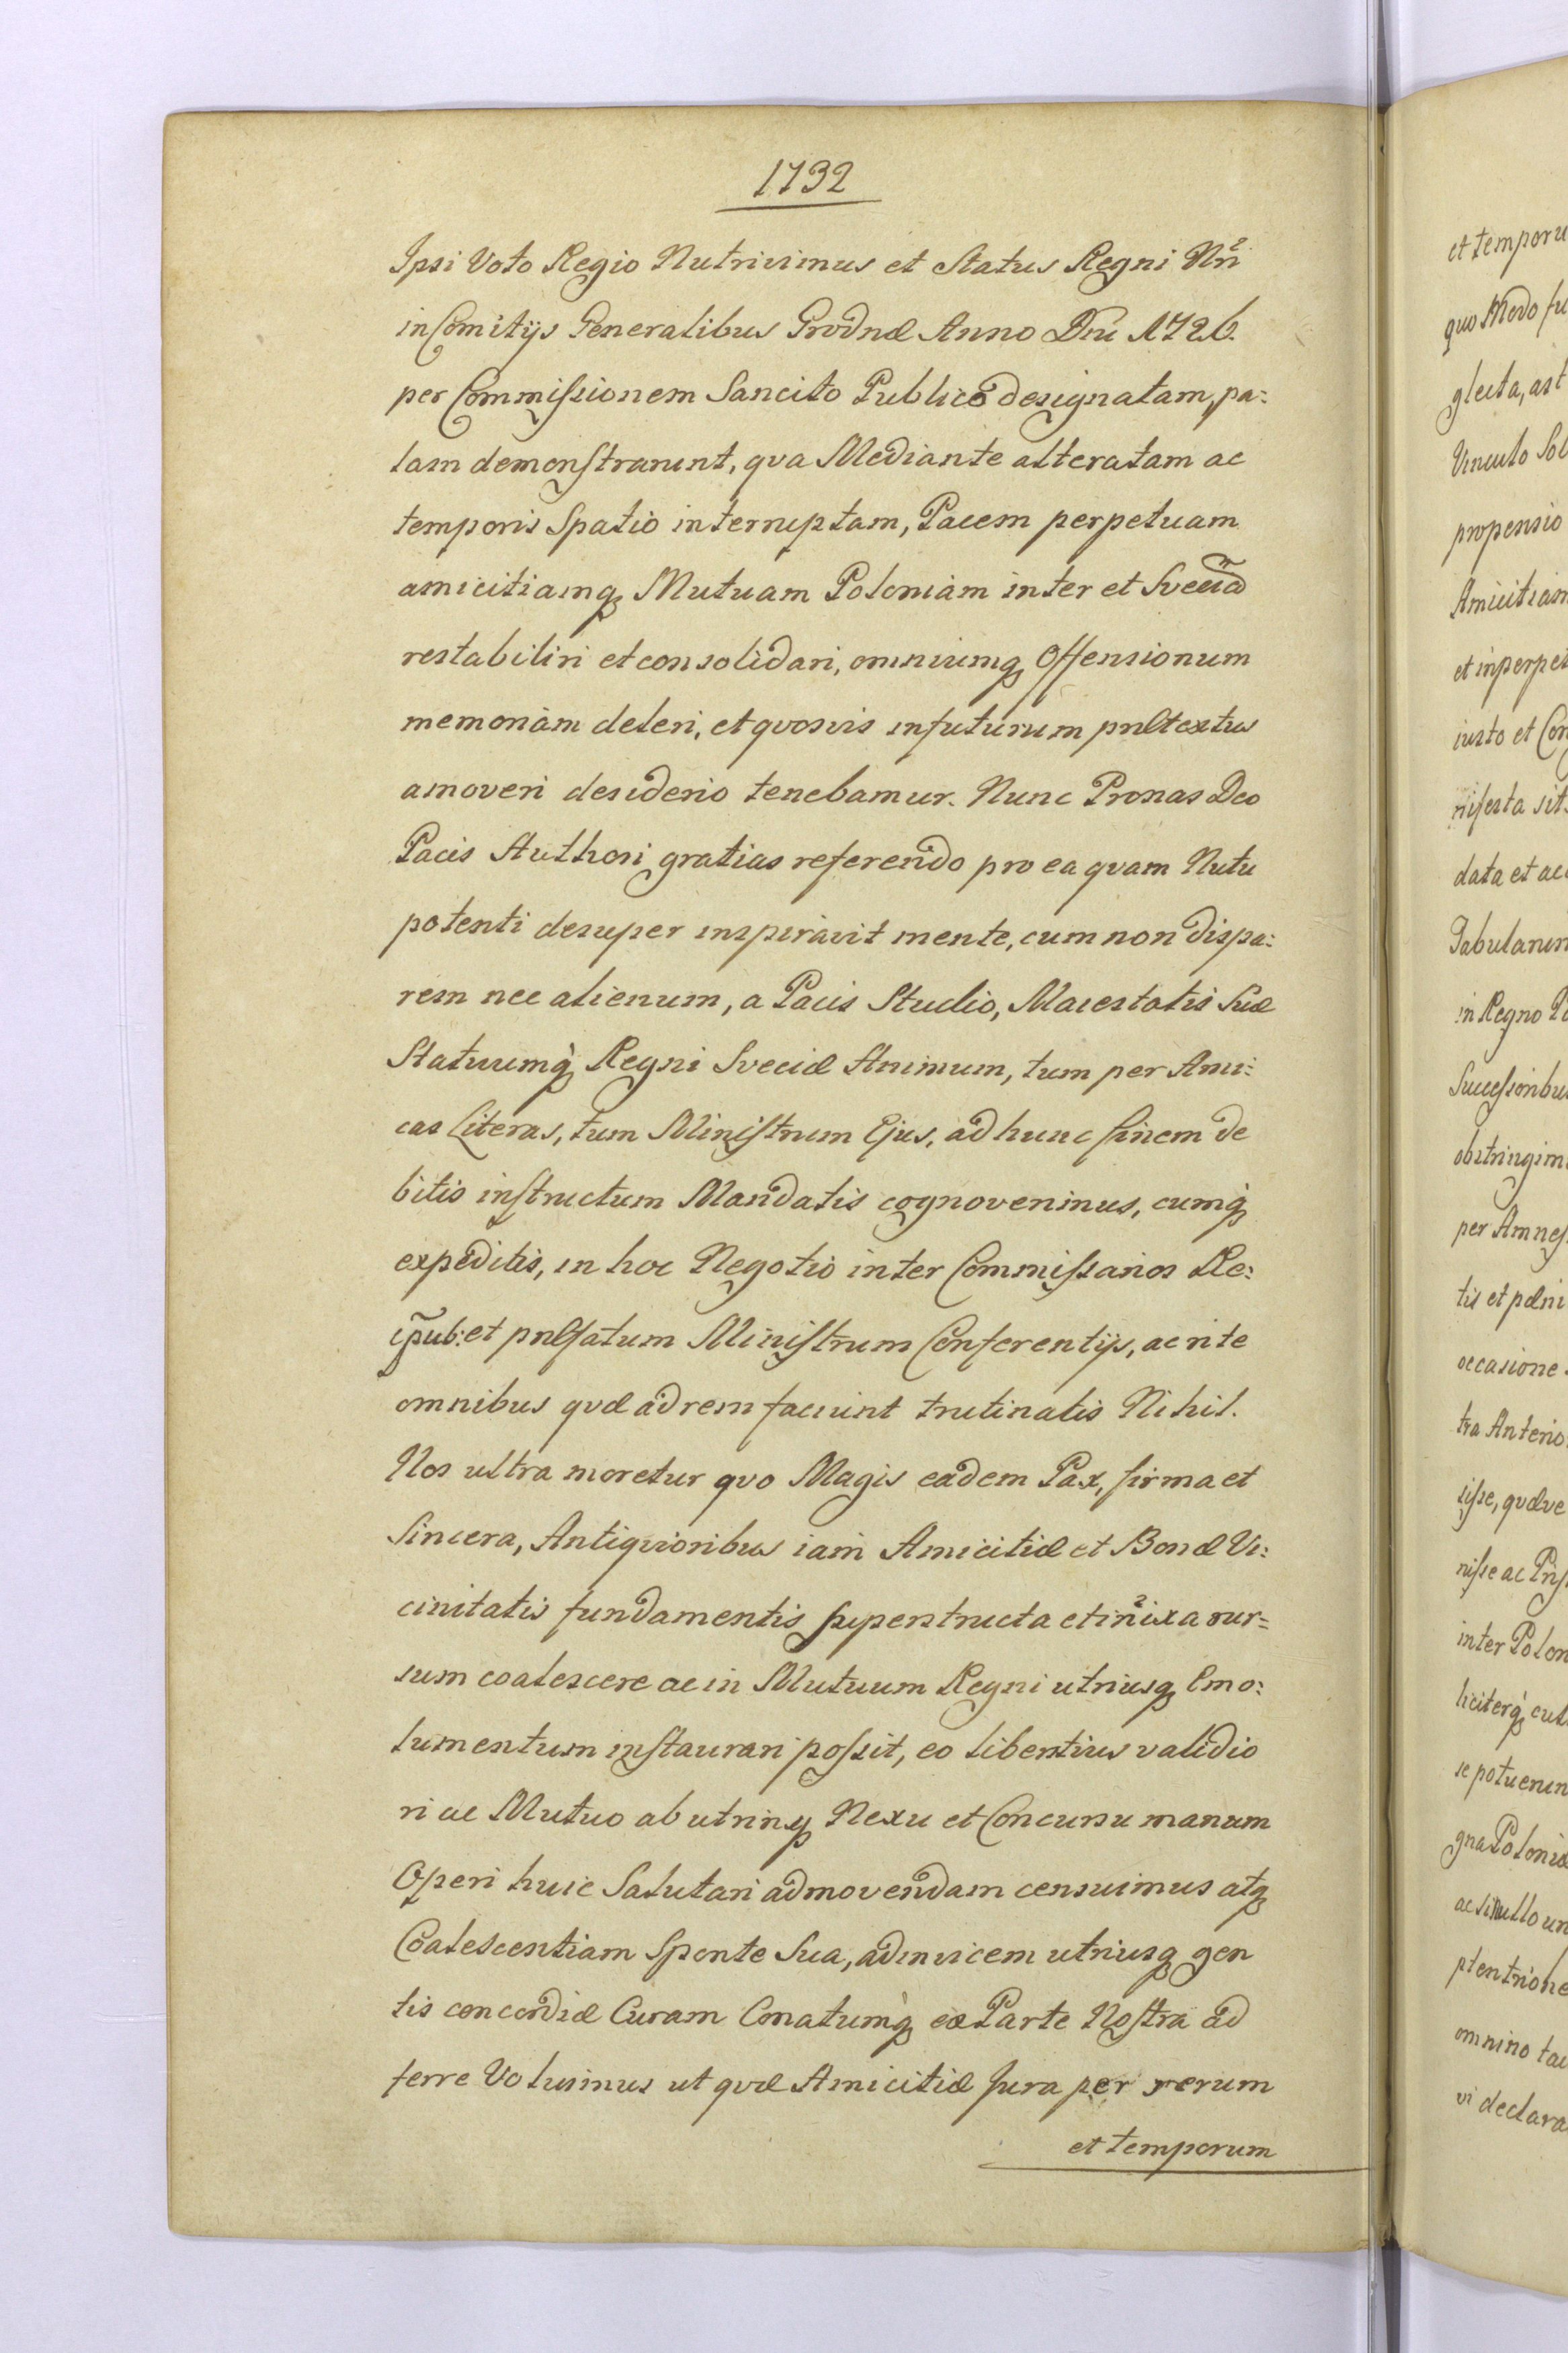 1732
Ipsi Voto Regio Nutrivimus et Status Regni Nri
in Comitijs Generalibus Grodnæ Anno Dni 1726.
per Commissionem Sancito Publico designatam, pa:
lam demonstrarunt, qva Mediante alteratam ac
temporis Spatio interruptam, Pacem perpetuam
amicitiamq Mutuam Poloniam inter et Sveciã
restabiliri et consolidari, omniumq Offensionum
memoriam deleri, et qvosvis infuturum pnltextus
amoveri desiderio tenebamur. Nunc Pronas Deo
Pacis Authori gratias referendo pro ea qvam Nutu
potenti desuper inspiravit mente, cum non dispa:
rem nec alienum, a Pacis Studio, Maiestatis Suæ
Statuumq Regni Sveciæ Animum, tum per Ami:
cas Literas, tum Ministrum Ejus, ad hunc finem de
bitis instructum Mandatis cognoverimus, cumq
expeditis, in hoc Negotio inter Commissarios Re:
ipub: et pnlfatum Ministrum Conferentijs, ac rite
omnibus qvæ ad rem faciunt trutinatis Nihil.
Nos ultra moretur qvo Magis eadem Pax, firma et
Sincera, Antiqvioribus iam Amicitiæ et Bonæ Vi:
cinitatis fundamentis superstructa et inixa rur=
sum coalescere ac in Mutuum Regni utriusq Emo:
lumentum instaurari possit, eo libentius validio
ri ac Mutuo ab utrinq Nexu et Concursu manum
Operi huic Salutari admovendam censuimus atq
Coalescentiam Sponte Sua, adinvicem utriusq gen
tis concordiæ Curam Conatumq ex Parte Nostra ad
ferre Voluimus ut qvæ Amicitiæ Jura per rerum
et temporum
et temporu
quo Modo fu
glecta, ast
Vinculo Sol
propensio
Amicitiam
et inperpet
iusto et Con
nifesta sit
data et ac
Tabularum
in Regno Po
Successoribus
obstringim
per Amnes
tis et pæni
occasione
tra Anterio
sisse, qvæve
nisse ac
inter Polon
liciterq cul
se potuerin
gna Poloniæ
ac si nullo un
ptentrione
omnino tac
vi declara